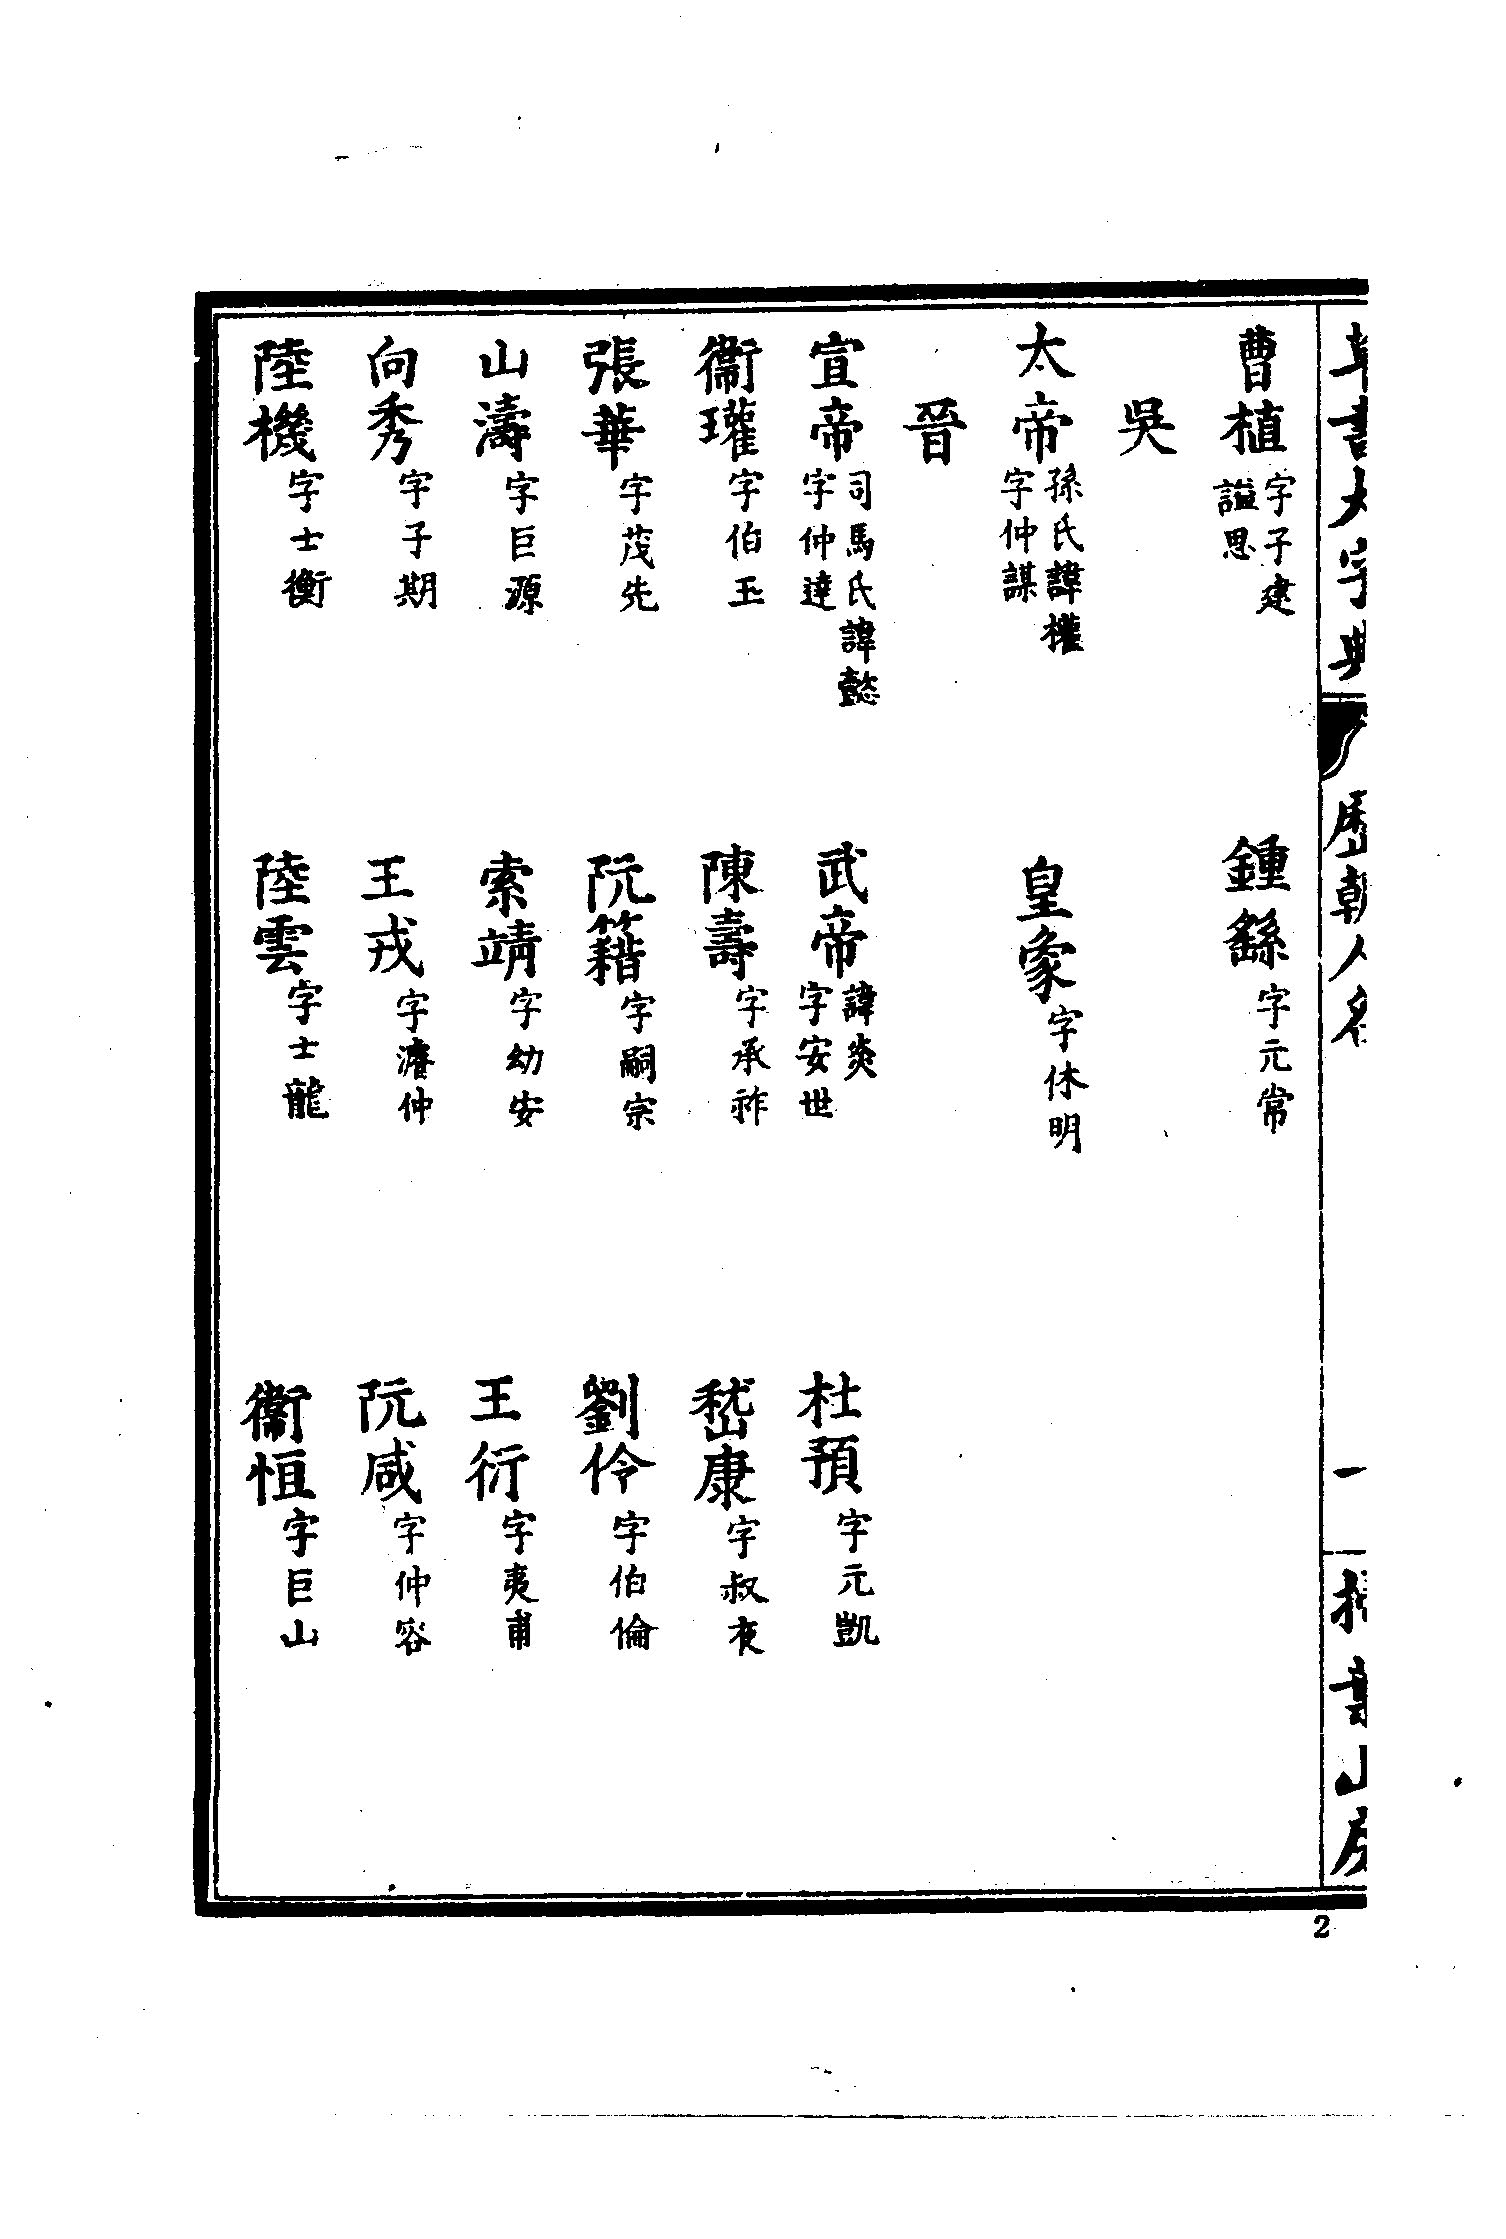 草書大字典 歷朝人名 一 掃葉山房
曹植 字子建 謚思 鍾繇 字元常
吳
太帝 孫氏諱權 字仲謀 皇象 字休明
晉
宣帝 司馬氏諱懿 字仲達 武帝 諱炎 字安世 杜預 字元凱
衞瓘 字伯玉 陳壽 字承祚 嵇康 字叔夜
張華 字茂先 阮籍 字嗣宗 劉伶 字伯倫
山濤 字巨源 索靖 字幼安 王衍 字夷甫
向秀 字子期 王戎 字濬仲 阮咸 字仲容
陸機 字士衡 陸雲 字士龍 衞恒 字巨山
2